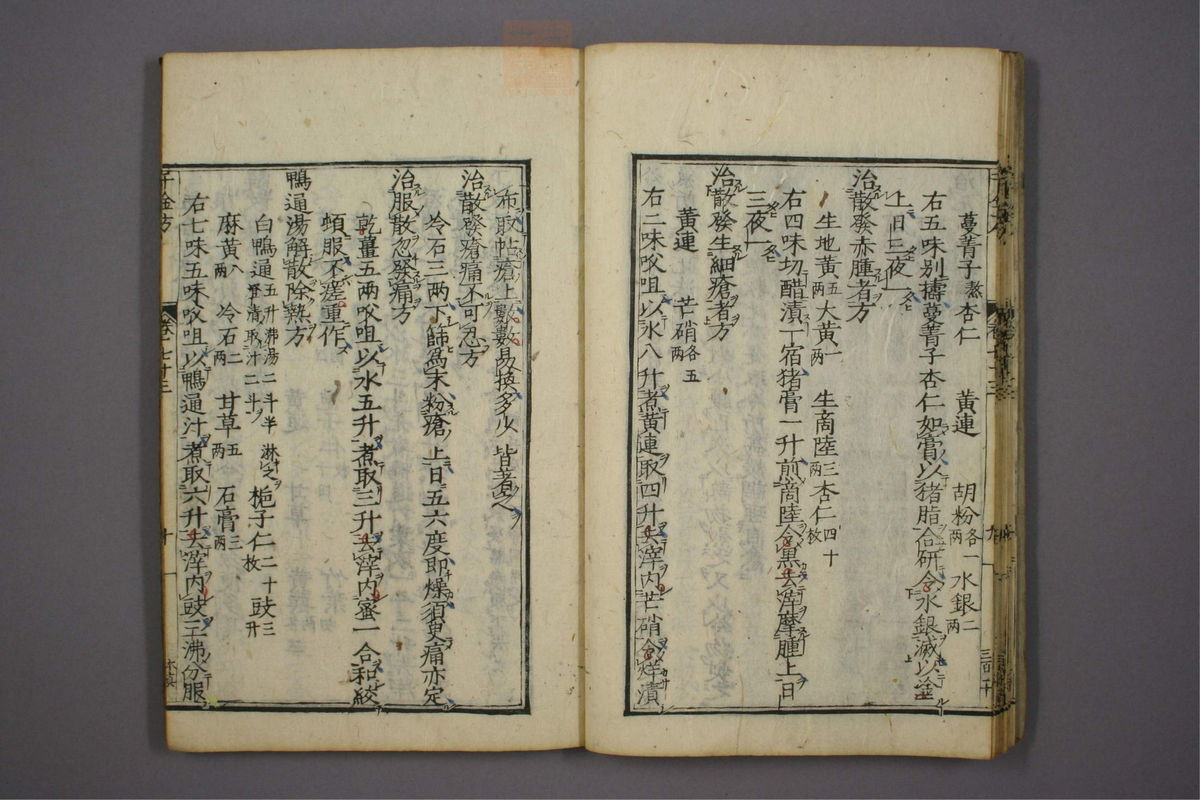 蔓菁子熬 杏仁 黄連 胡粉各一两 水銀二两
右五味别擣蔓菁子杏仁如膏以猪脂合研令水銀滅以塗
上日三夜一
治散發赤腫者方
生地黄五两 大黄一两 生商陸三两 杏仁四十枚
右四味切醋漬一宿猪膏一升煎商陸令黒去滓摩腫上日
三夜一
治散發生細瘡者方
黄連 芒硝各五两
右二味㕮咀以水八升煮黄連取四升去滓内芒硝令烊漬
布取帖瘡上數數易換多少皆著之
治散發瘡痛不可忍方
冷石三两下篩爲末粉瘡上日五六度即燥須臾痛亦定
治服散忽發痛方
乾薑五两㕮咀以水五升煮取三升去滓内蜜一合和絞
頓服不瘥重作
鴨通湯解散除熱方
白鴨通五升沸湯二斗半淋之澄清取汁二斗 梔子仁二十枚 豉三升
麻黄八两 冷石二两 甘草五两 石膏三两
右七味五味㕮咀以鴨通汁煮取六升去滓内豉三沸分服
千金方
十